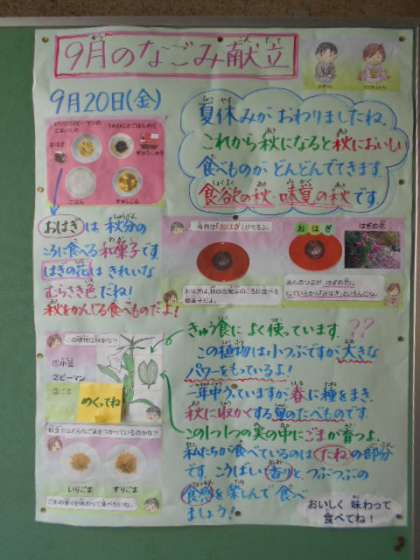 9月のなごみ献立
9月20日(金)
夏休みがおわりましたね、
これから秋になると秋においしい
食べものがどんどんでてきます。
食欲の秋 味覚の秋です。
おはぎは秋分の
ころに食べる和菓子です。
はぎの花はきれいな
むらさき色だね!
秋をかんじる食べものだよ!
おはぎ
はぎの花
きゅう食によく使っています。??
この植物は小つぶですが大きな
パワーをもっているよ!
一年中うっていますが春に種をまき、
秋に収かくする夏のたべものです。
この1つ1つの実の中にごまが育つよ。
私たちが食べているのは「たね」の部分
です。こうばしい香りと、つぶつぶの
食感を楽しんで食べ
ましょう!
①小豆
②ピーマン
めくってね
いりごま
すりごま
おいしく味わって
食べてね!